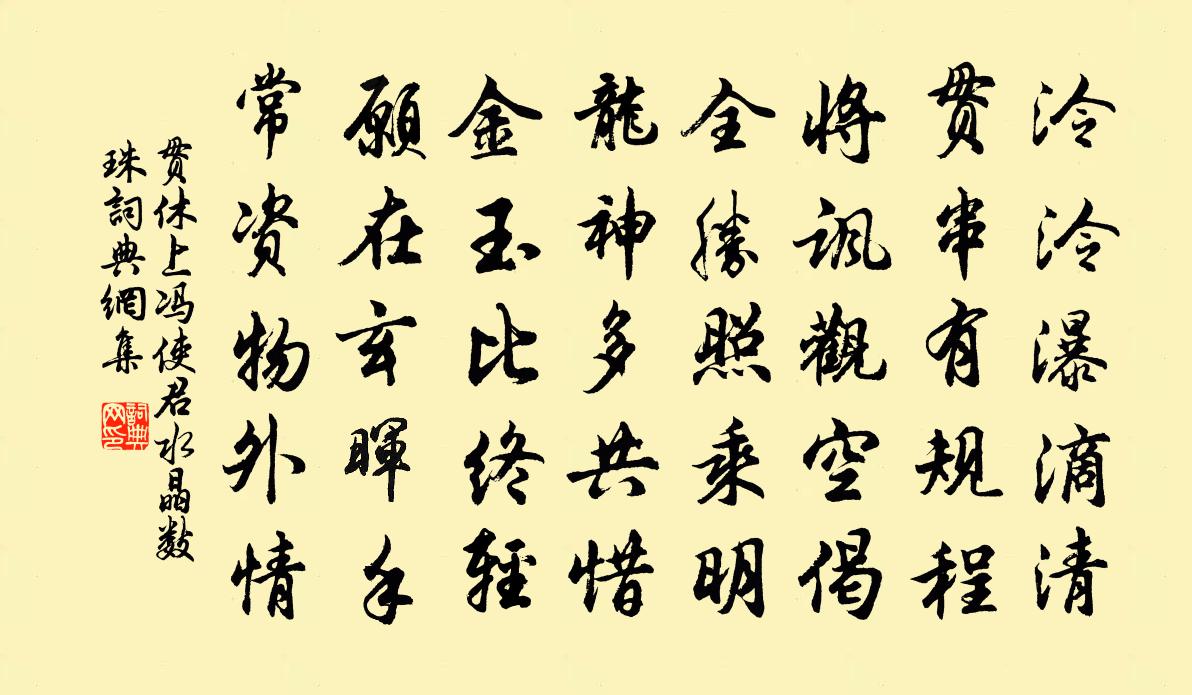 泠泠瀑滴清
贯串有规程
將諷觀空偈
全勝照乘明
龍神多共惜
金玉比終輕
願在玄暉手
常资物外情
贯休上冯使君水晶数
珠詞典網集
詞典网印